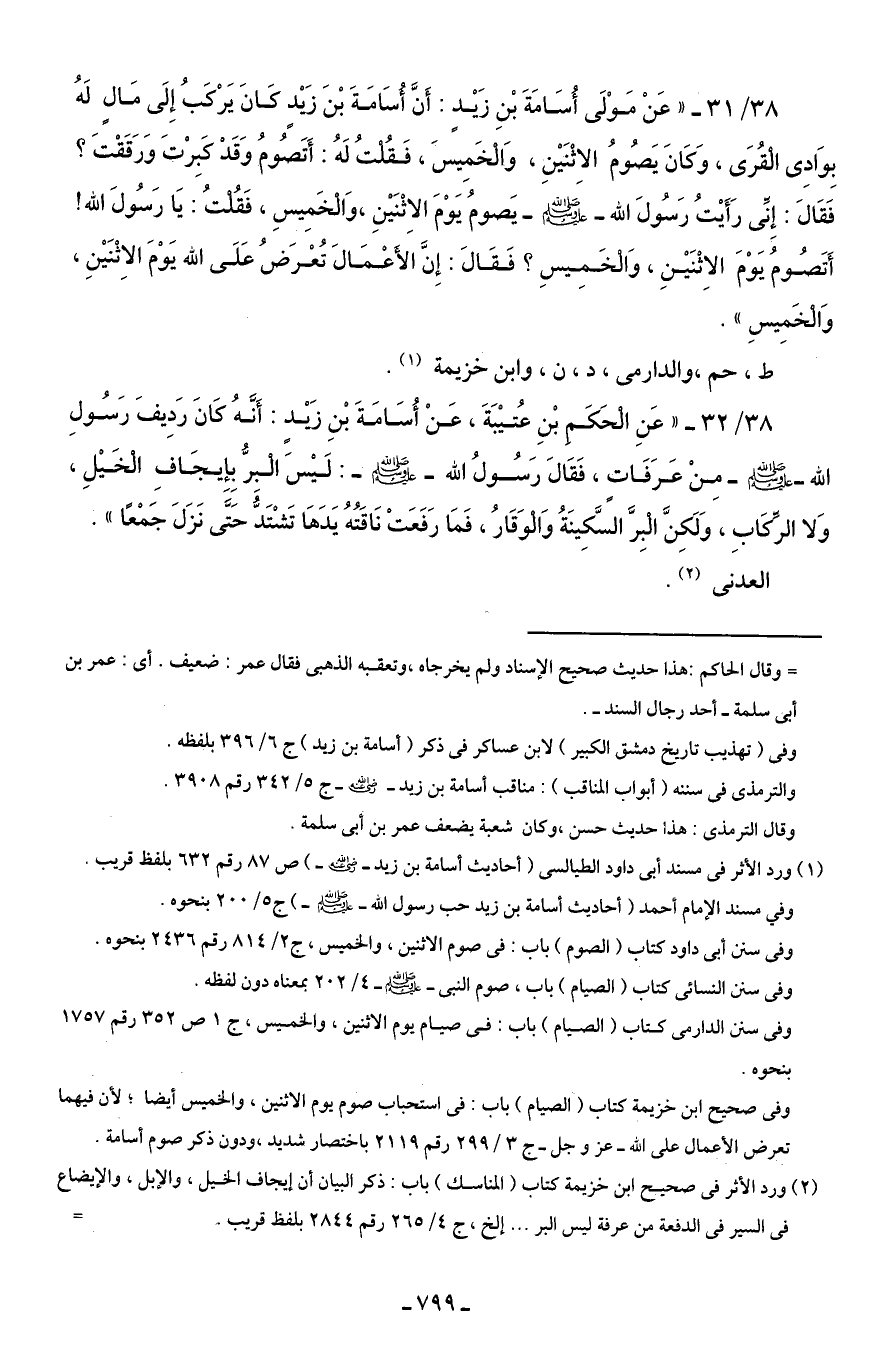 ٣١/٣٨ ـ « عَنْ مَـوْلَى أُسَـامَةَ بْنِ زَيْـدٍ : أَنَّ أُسَامَـةَ بْنَ زَيْدٍ كَـانَ يَرْكَبُ إِلَى مَـالٍ لَهُ
بِوَادِى الْقُرَى ، وَكَانَ يَصُومُ الاِثْنَيْنِ ، وَالْخَمِيسَ ، فَـقُلْتُ لَهُ : أَتَصُومُ وَقَدْ كَبِرْتَ وَرَقَقْتَ ؟
فَقَالَ : إِنِّى رَأَيْتُ رَسُولَ الله ـ ﷺ ـ يَصومُ يَوْمَ الاِثْنَيْنِ ،وَالْخَمِيسِ ، فَقُلْتُ : يَا رَسُولَ الله!
أَتَصُـومُ يَوْمَ الاِثْنَيْـنِ ، وَالْخَـمِيسِ ؟ فَـقَـالَ : إِنَّ الأَعْـمَـالَ تُعْـرَضُ عَلَـى الله يَوْمَ الاِثْنَيْنِ ،
وَالْخَمِيسِ » .
ط ، حم ،والدارمى ، د ، ن ، وابن خزيمة (١) .
٣٢/٣٨ ـ « عَنِ الْحَكَـمِ بْنِ عُتَـيْبَةَ ، عَـنْ أُسَامَـةَ بْنِ زَيْـدٍ : أَنَّـهُ كَانَ رَدِيفَ رَسُـولِ
الله ـ ﷺ ـ مِـنْ عَـرَفَـاتٍ ، فَقَالَ رَسُـولُ الله ـ ﷺ ـ : لَـيْسَ الْـبِرُّ بِإِيـجَـافِ الْخَـيْلِ ،
وَلا الرِّكَابِ ، وَلَكِنَّ الْبِرَّ السَّكِينَةُ وَالْوَقَارُ ، فَمَا رَفَعَتْ نَاقَتُهُ يَدَهَا تَشْتَدُّ حَتَّى نَزَلَ جَمْعًا » .
العدنى (٢) .
= وقال الحاكم :هذا حديث صحيح الإسناد ولم يخرجاه ،وتعقبه الذهبى فقال عمر : ضعيف . أى : عمر بن
أبى سلمة ـ أحد رجال السند ـ .
وفى ( تهذيب تاريخ دمشق الكبير ) لابن عساكر فى ذكر ( أسامة بن زيد ) ج ٦/ ٣٩٦ بلفظه .
والترمذى فى سننه ( أبواب المناقب ) : مناقب أسامة بن زيد ـ رضي الله عنه ـ ج ٥/ ٣٤٢ رقم ٣٩٠٨ .
وقال الترمذى : هذا حديث حسن ،وكان شعبة يضعف عمر بن أبى سلمة .
(١) ورد الأثر فى مسند أبى داود الطيالسى ( أحاديث أسامة بن زيد ـ رضي الله عنه ـ ) ص ٨٧ رقم ٦٣٢ بلفظ قريب .
وفي مسند الإمام أحمد ( أحاديث أسامة بن زيد حب رسول الله ـ ﷺ ـ ) ج٥/ ٢٠٠ بنحوه .
وفى سنن أبى داود كتاب ( الصوم ) باب : فى صوم الاثنين ، والخميس ، ج٢/ ٨١٤ رقم ٢٤٣٦ بنحوه .
وفى سنن النسائى كتاب ( الصيام ) باب ، صوم النبى ـ ﷺ ـ ٤/ ٢٠٢ بمعناه دون لفظه .
وفى سنن الدارمى كـتاب ( الصـيام ) باب : فـى صيـام يوم الاثنين ، والخمـيس ، ج ١ ص ٣٥٢ رقم ١٧٥٧
بنحوه .
وفى صحيح ابن خزيمة كتاب ( الصيام ) باب : فى استحباب صوم يوم الاثنين ، والخميس أيضا ؛ لأن فيهما
تعرض الأعمال على الله ـ عز و جل ـ ج ٣ / ٢٩٩ رقم ٢١١٩ باختصار شديد ،ودون ذكر صوم أسامة .
(٢) ورد الأثر فى صحيـح ابن خزيمة كتاب ( المناسـك ) باب : ذكر البيان أن إيجاف الخيل ، والإبل ، والإيضاع
فى السير فى الدفعة من عرفة ليس البر ... إلخ ، ج ٤/ ٢٦٥ رقم ٢٨٤٤ بلفظ قريب . =
ـ ٧٩٩ ـ